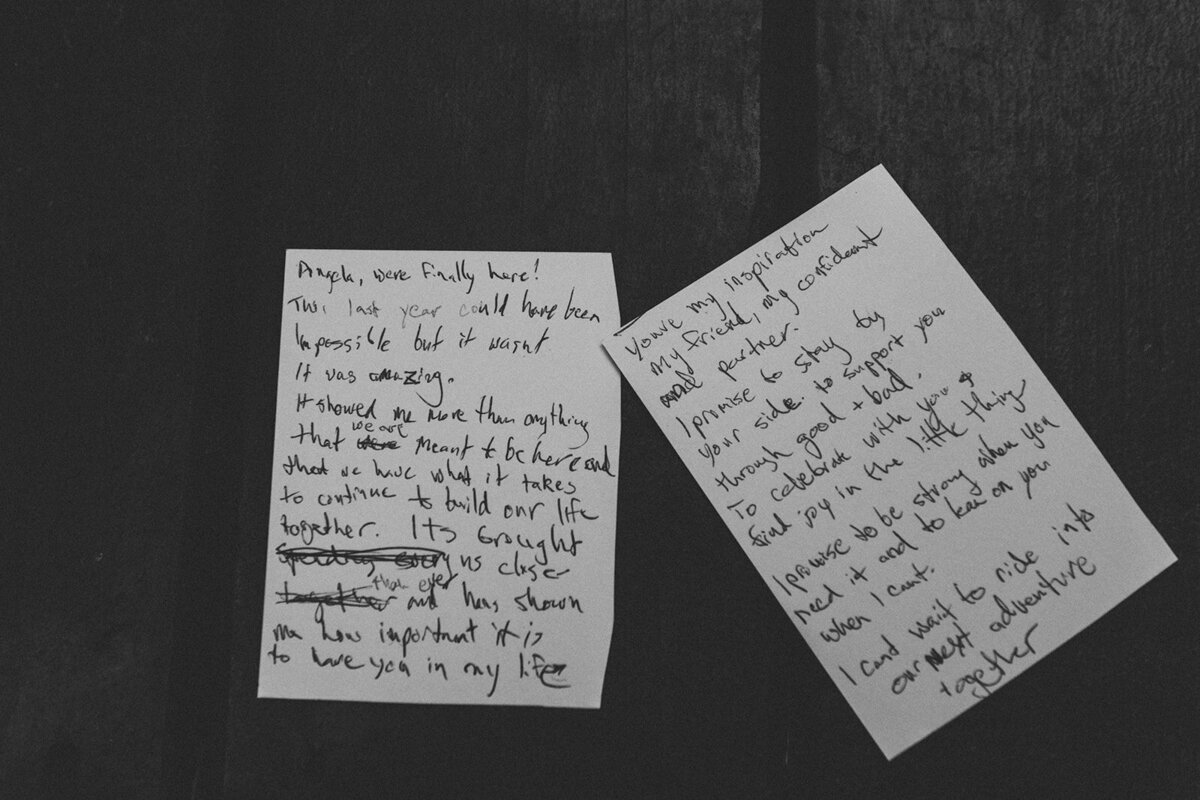 Angela, were finally here!
This last year could have been
Impossible but it wasnt
It was amazing.
It showed me more than anything
we are
that were meant to be here and
that we have what it takes
to continue to build our life
together. Its brought
Spending every us closer
than ever
together and has shown
me how important it is
to have you in my life
youre my inspiration
my friend, my confidant
and partner.
I promise to stay by
your side. to support you
through good + bad.
To celebrate with you &
find joy in the little thing
I promise to be strong when you
need it and to lean on you
when I cant.
I cant wait to ride into
our next adventure
together